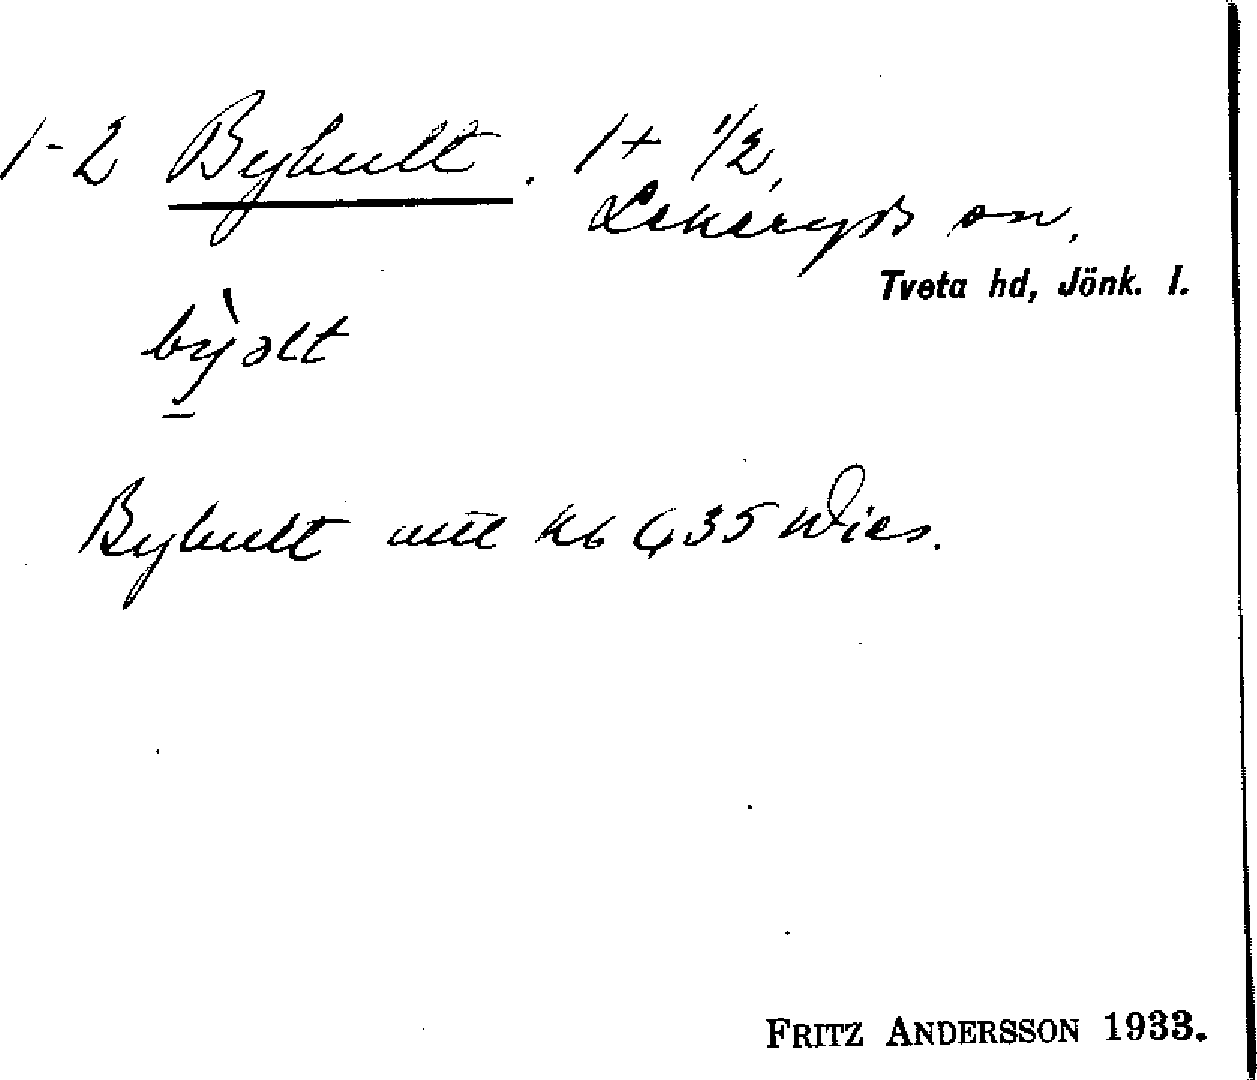 1-2 Byhult. 1 + 1/2,
Lekeryds sn.
Tveta hd, Jönk. l.
bỳəlt
Byhult utt kb 635 Wies.
FRITZ ANDERSSON 1933.